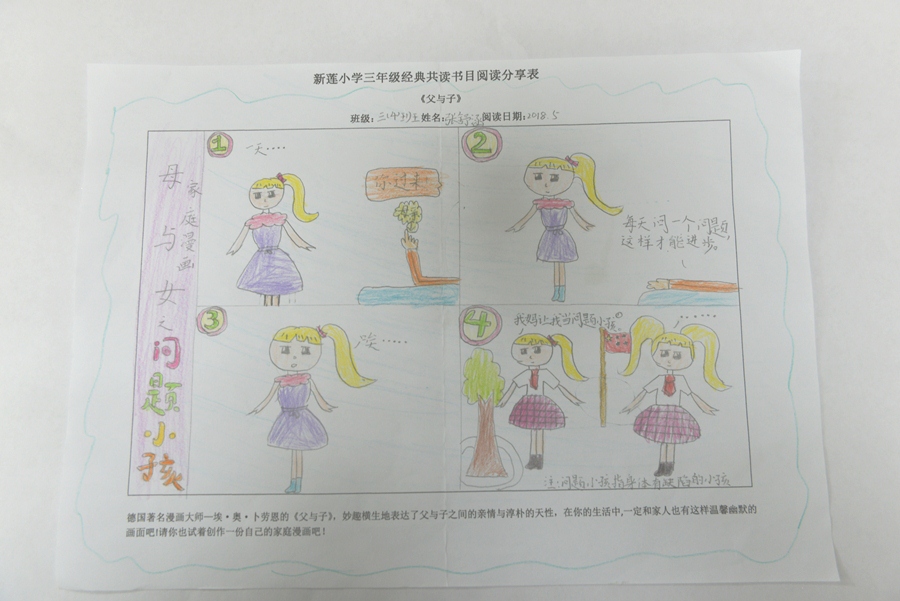 新莲小学三年级经典共读书目阅读分享表
《父与子》
班级：三(4)班 姓名： 阅读日期：2018.5
母与女之问题小孩
家庭漫画
1
一天····
你过来！
2
每天问一个问题，
这样才能进步。
3
·····
4
我妈让我当问题小孩。
······
注：问题小孩指身体有缺陷的小孩
德国著名漫画大师—埃·奥·卜劳恩的《父与子》，妙趣横生地表达了父与子之间的亲情与淳朴的天性，在你的生活中,一定和家人也有这样温馨幽默的
画面吧!请你也试着创作一份自己的家庭漫画吧！